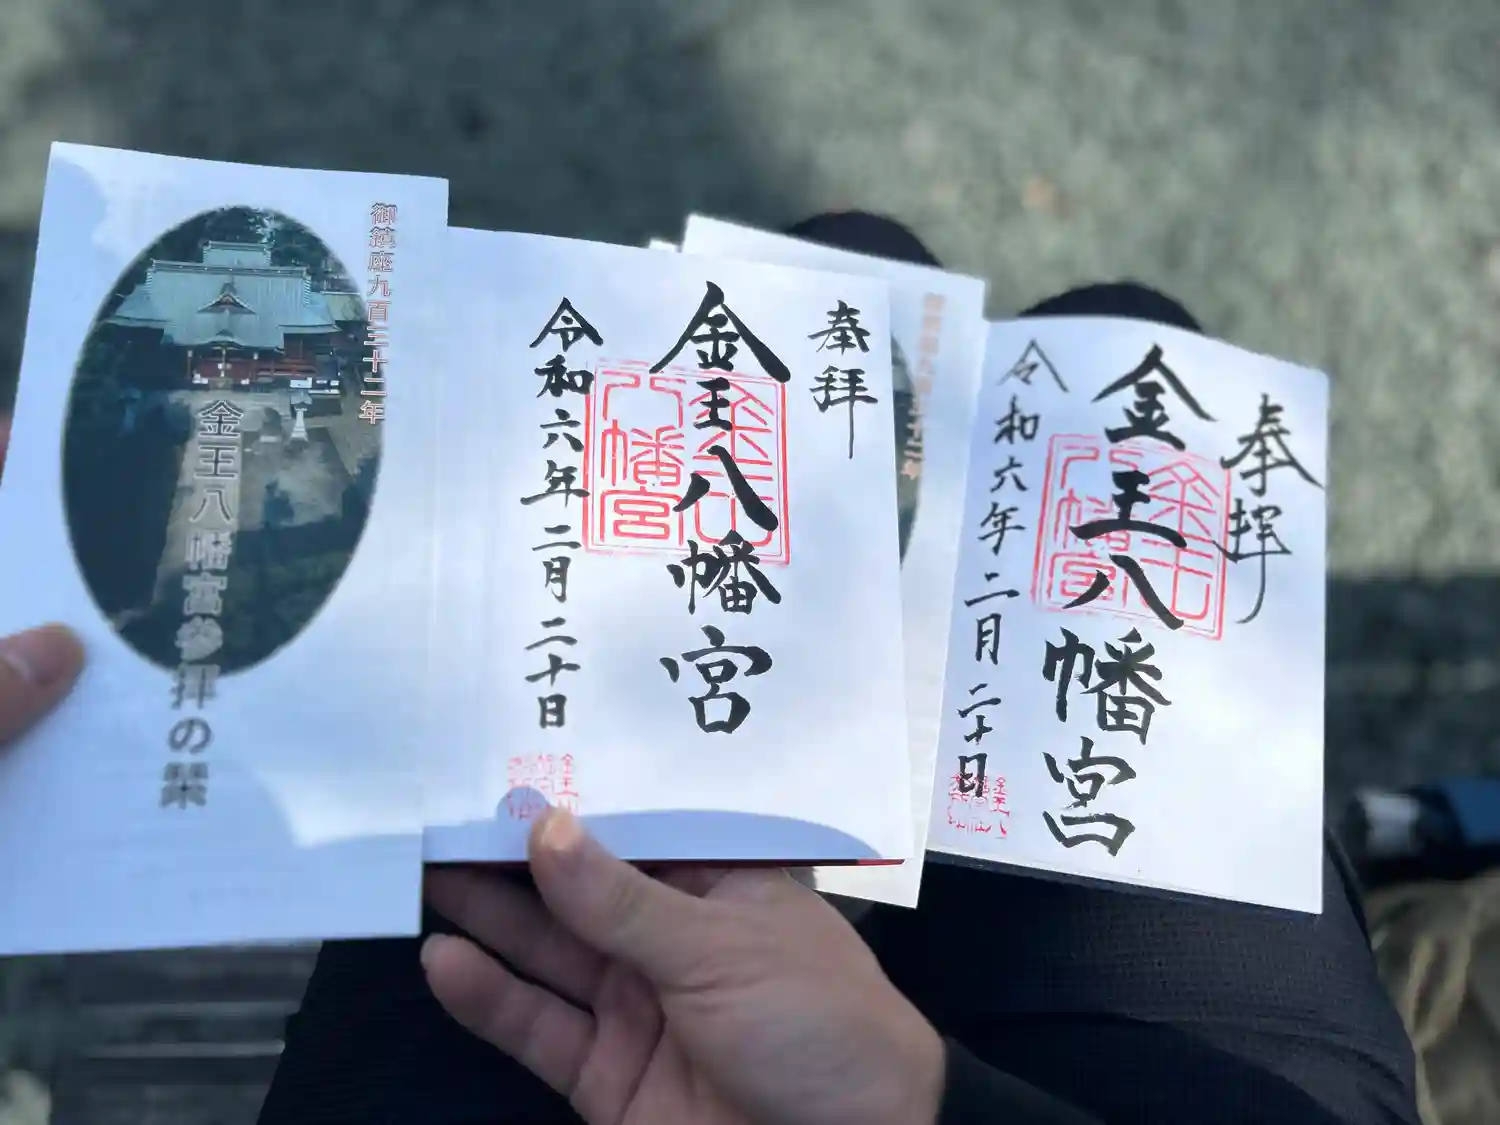 御鎮座九百三十二年
金王八幡宮参拝の栞
奉拝
金王八幡宮
令和六年二月二十日
金王八幡宮
奉拝
金王八幡宮
令和六年二月二十日
金王八幡宮